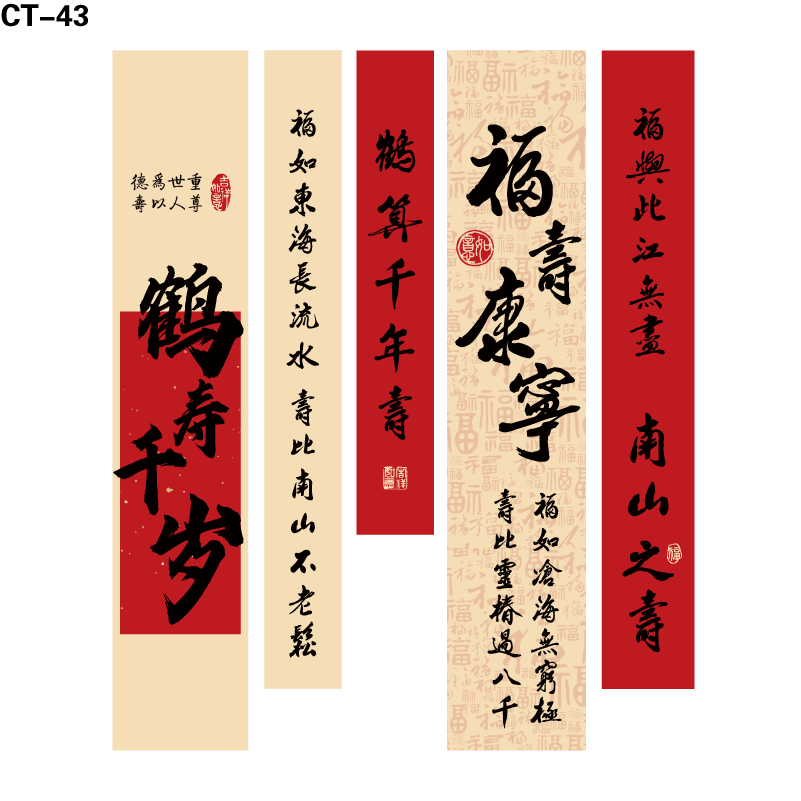 CT-43
重尊
世人
為以
德壽
吉祥
如意
鹤
寿
千
岁
福如東海長流水
壽比南山不老鬆
鶴算千年壽
吉祥
如意
福
壽
康
寧
如意
福如滄海無窮極
壽比靈椿過八千
福與此江無盡
南山之壽
福